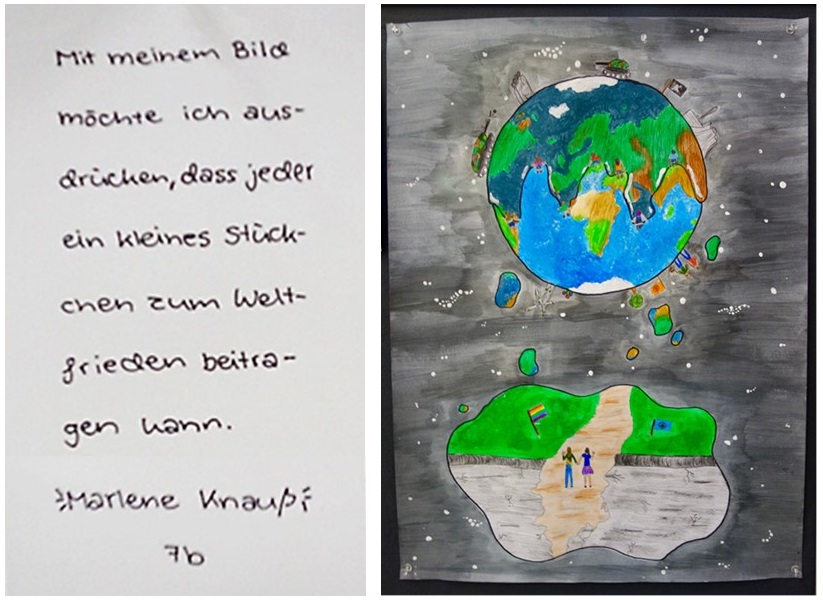 Mit meinem Bild
möchte ich aus-
drücken, dass jeder
ein kleines Stück-
chen zum Welt-
frieden beitra-
gen kann.
Marlene Knaupf
7b